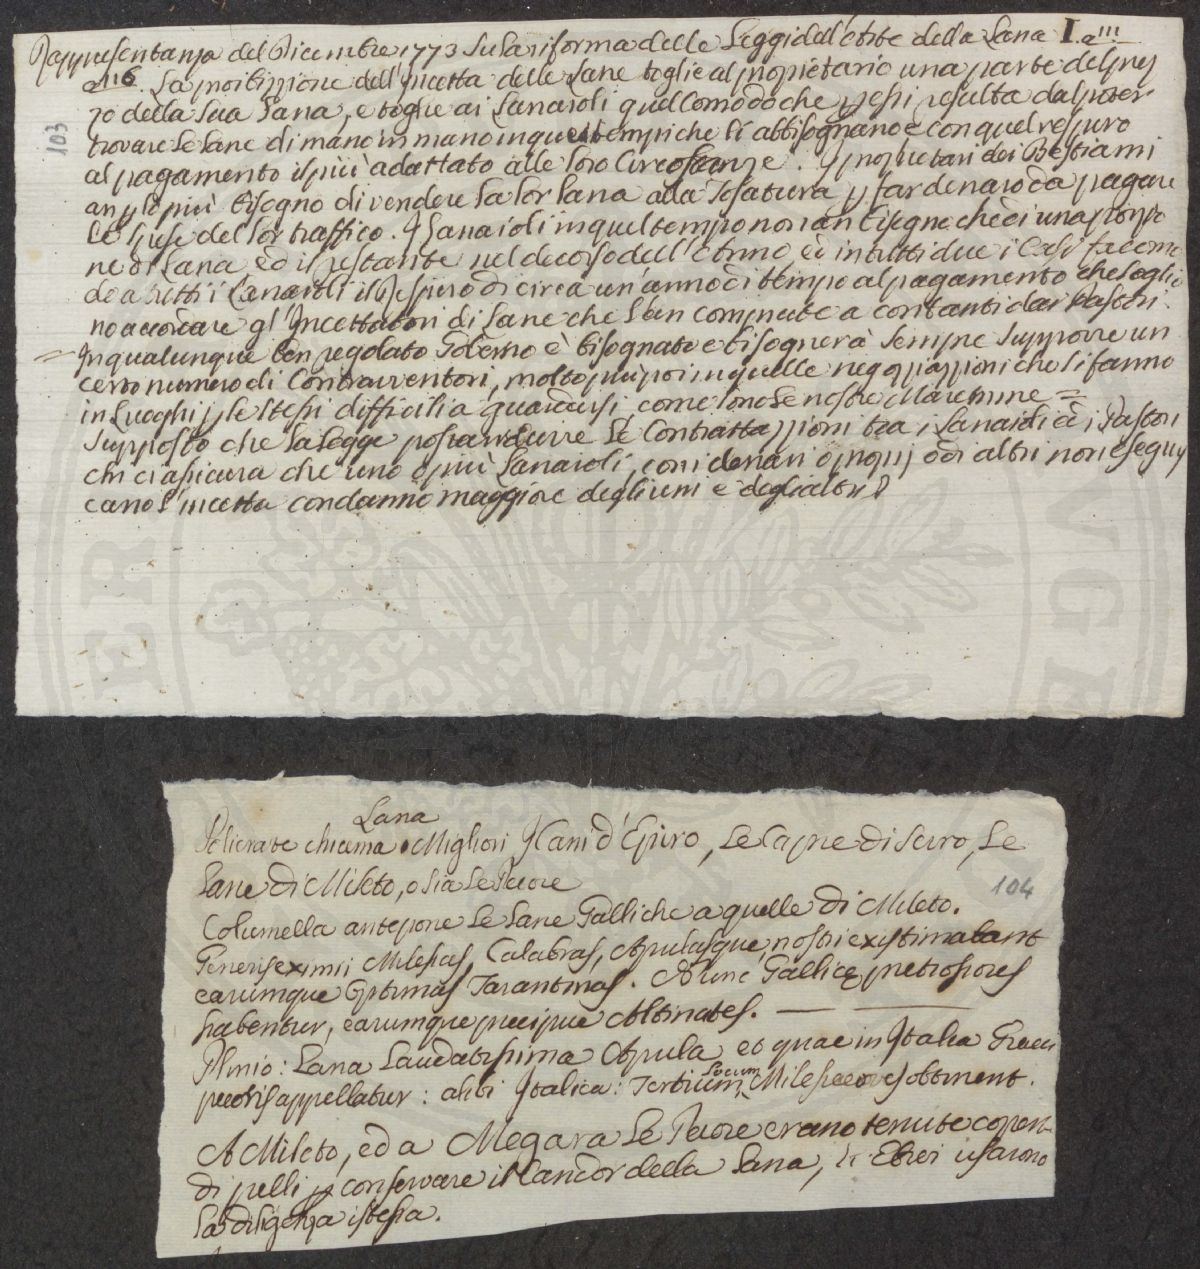 Rappresentanza del Dicembre 1773 su la riforma delle Leggi dell'Arte della Lana I. a 111
a 116. La proibizione dell'Incetta delle Lane toglie al proprietario una parte del prez
zo della sua Lana, e toglie ai Lanaioli quel Comodo che p essi resulta dal poter
trovare le Lane di mano in mano in quei tempi che li abbisognano e con quel respiro
al pagamento il più adattato alle loro Circostanze. I proprietari dei Bestiami
an p lo più bisogno di vendere la lor Lana alla Tosatura p far denaro da pagare
le spese del lor traffico. I Lanaioli in quel tempo non an bisogno che di una porzio
ne di Lana ed il restante nel decorso dell'Anno, ed in tutti due i Casi fa como
do a tutti i Lanaioli il respiro di circa un'anno di tempo al pagamento che soglio
no accordare gl'Incettatori di Lane che l'an comprate a contanti dai Pastori.
= In qualunque ben regolato Governo è bisognato e bisognerà sempre supporre un
certo numero di Contravventori, molto più poi in quelle negoziazioni che si fanno
in Luoghi p le stessi difficili a guardarsi, come sono le nostre Maremme =
Supposto che la Legge possa ridurre le Contrattazzioni tra i Lanaioli ed i Pastori
chi ci assicura che uno o più Lanaioli, con i denari o propri o di altri non eseguis
cano l'incetta con danno maggiore degli uni e degli altri?
103
Lana
Policrate chiama Migliori I Cani d'Epiro, Le Capre di Sciro, Le
Lane di Mileto, o sia Le Pecore
104
Columella antepone Le Lane Galliche a quelle di Mileto.
Generis eximii Milesias, Calabras, Apulasque nostri existimabant
earumque optimas Tarantinas. Nunc Gallicę pretiosiores
habentur, earumque precipue Altinates.
Plinio: Lana Laudatissima Apula et quae in Italia Graeci
pecoris appellatur: alibi Italica: Tertium locum Milesiae oves obtinent.
A Mileto, ed a Megara Le Pecore erano tenute coperte
di pelli p conservare il Candor della Lana, Gli Ebrei usarono
la diligenza istessa.